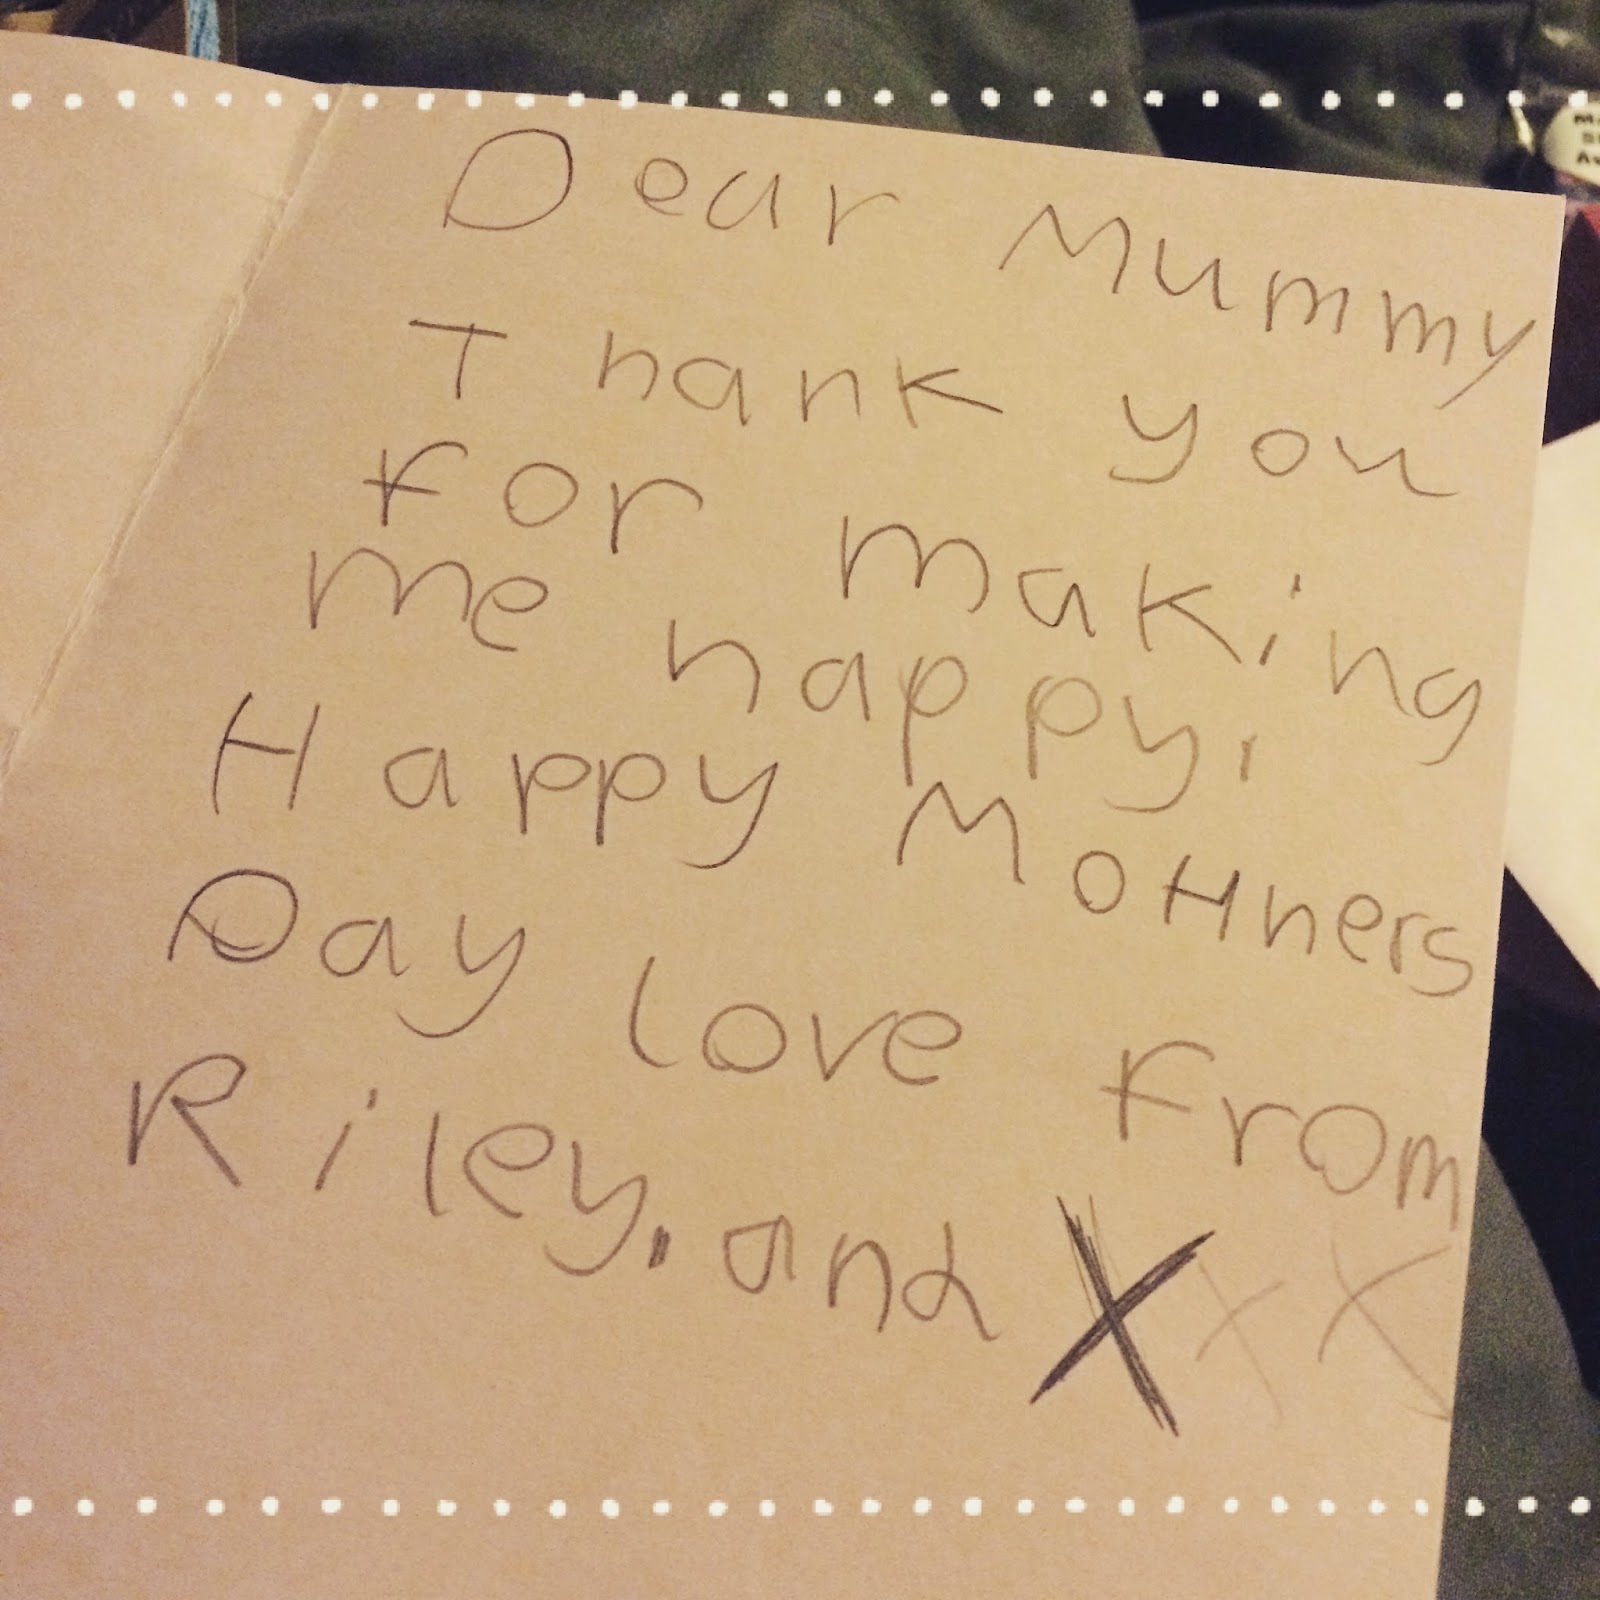 Dear Mummy
Thank you
for making
me happy,
Happy Mothers
Day love from
Riley, and XXX